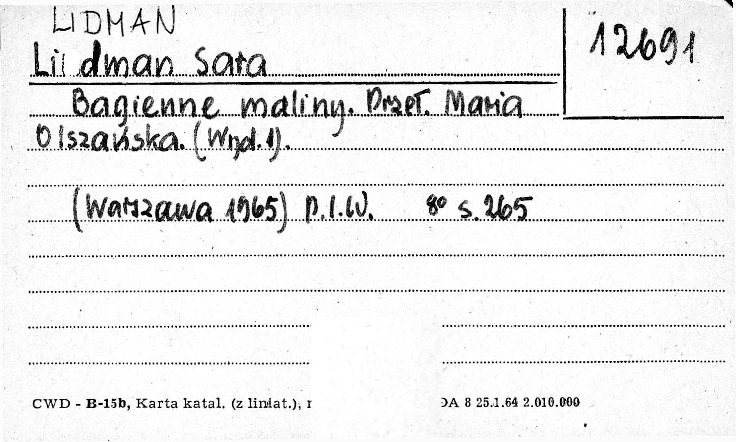 LIDMAN
Lidman Sara
12691
Bagienne maliny. Przeł. Maria
Olszańska. (Wyd. 1).
(Warszawa 1965) P.I.W. 8° s. 265
CWD - B-15b, Karta katal. (z liniat.), DA 8 25.1.64 2.010.000